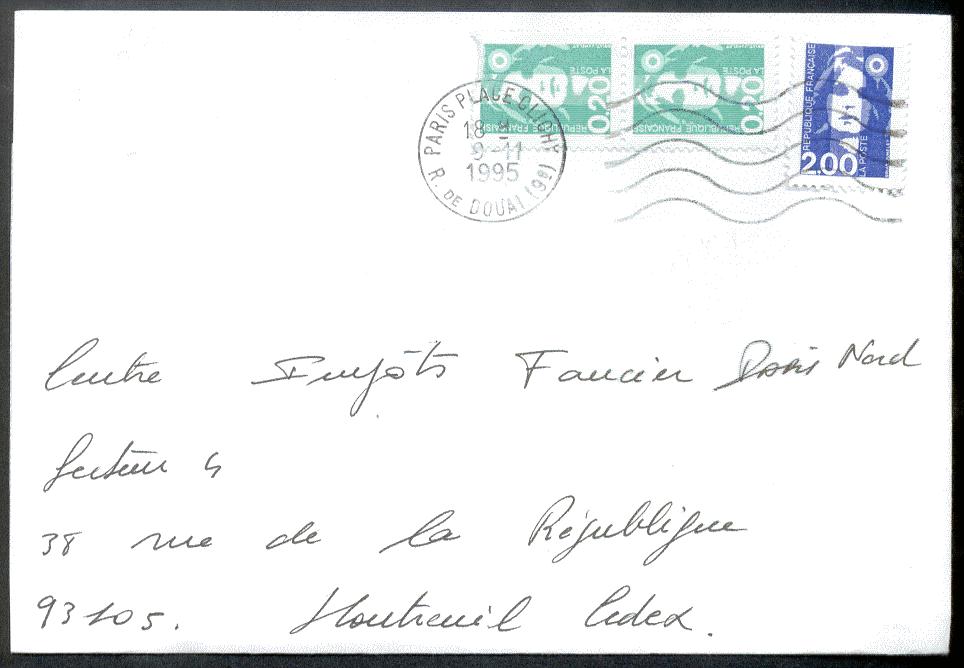 0,20 LA POSTE
REPUBLIQUE FRANÇAISE
0,20 LA POSTE
REPUBLIQUE FRANÇAISE
REPUBLIQUE FRANÇAISE
2,00 LA POSTE
PARIS PLACE CLICHY
18 H
9-11
1995
R. DE DOUAI (9e)
Centre Impôts Foncier Paris Nord
Secteur 4
38 rue de la République
93105. Montreuil Cedex.